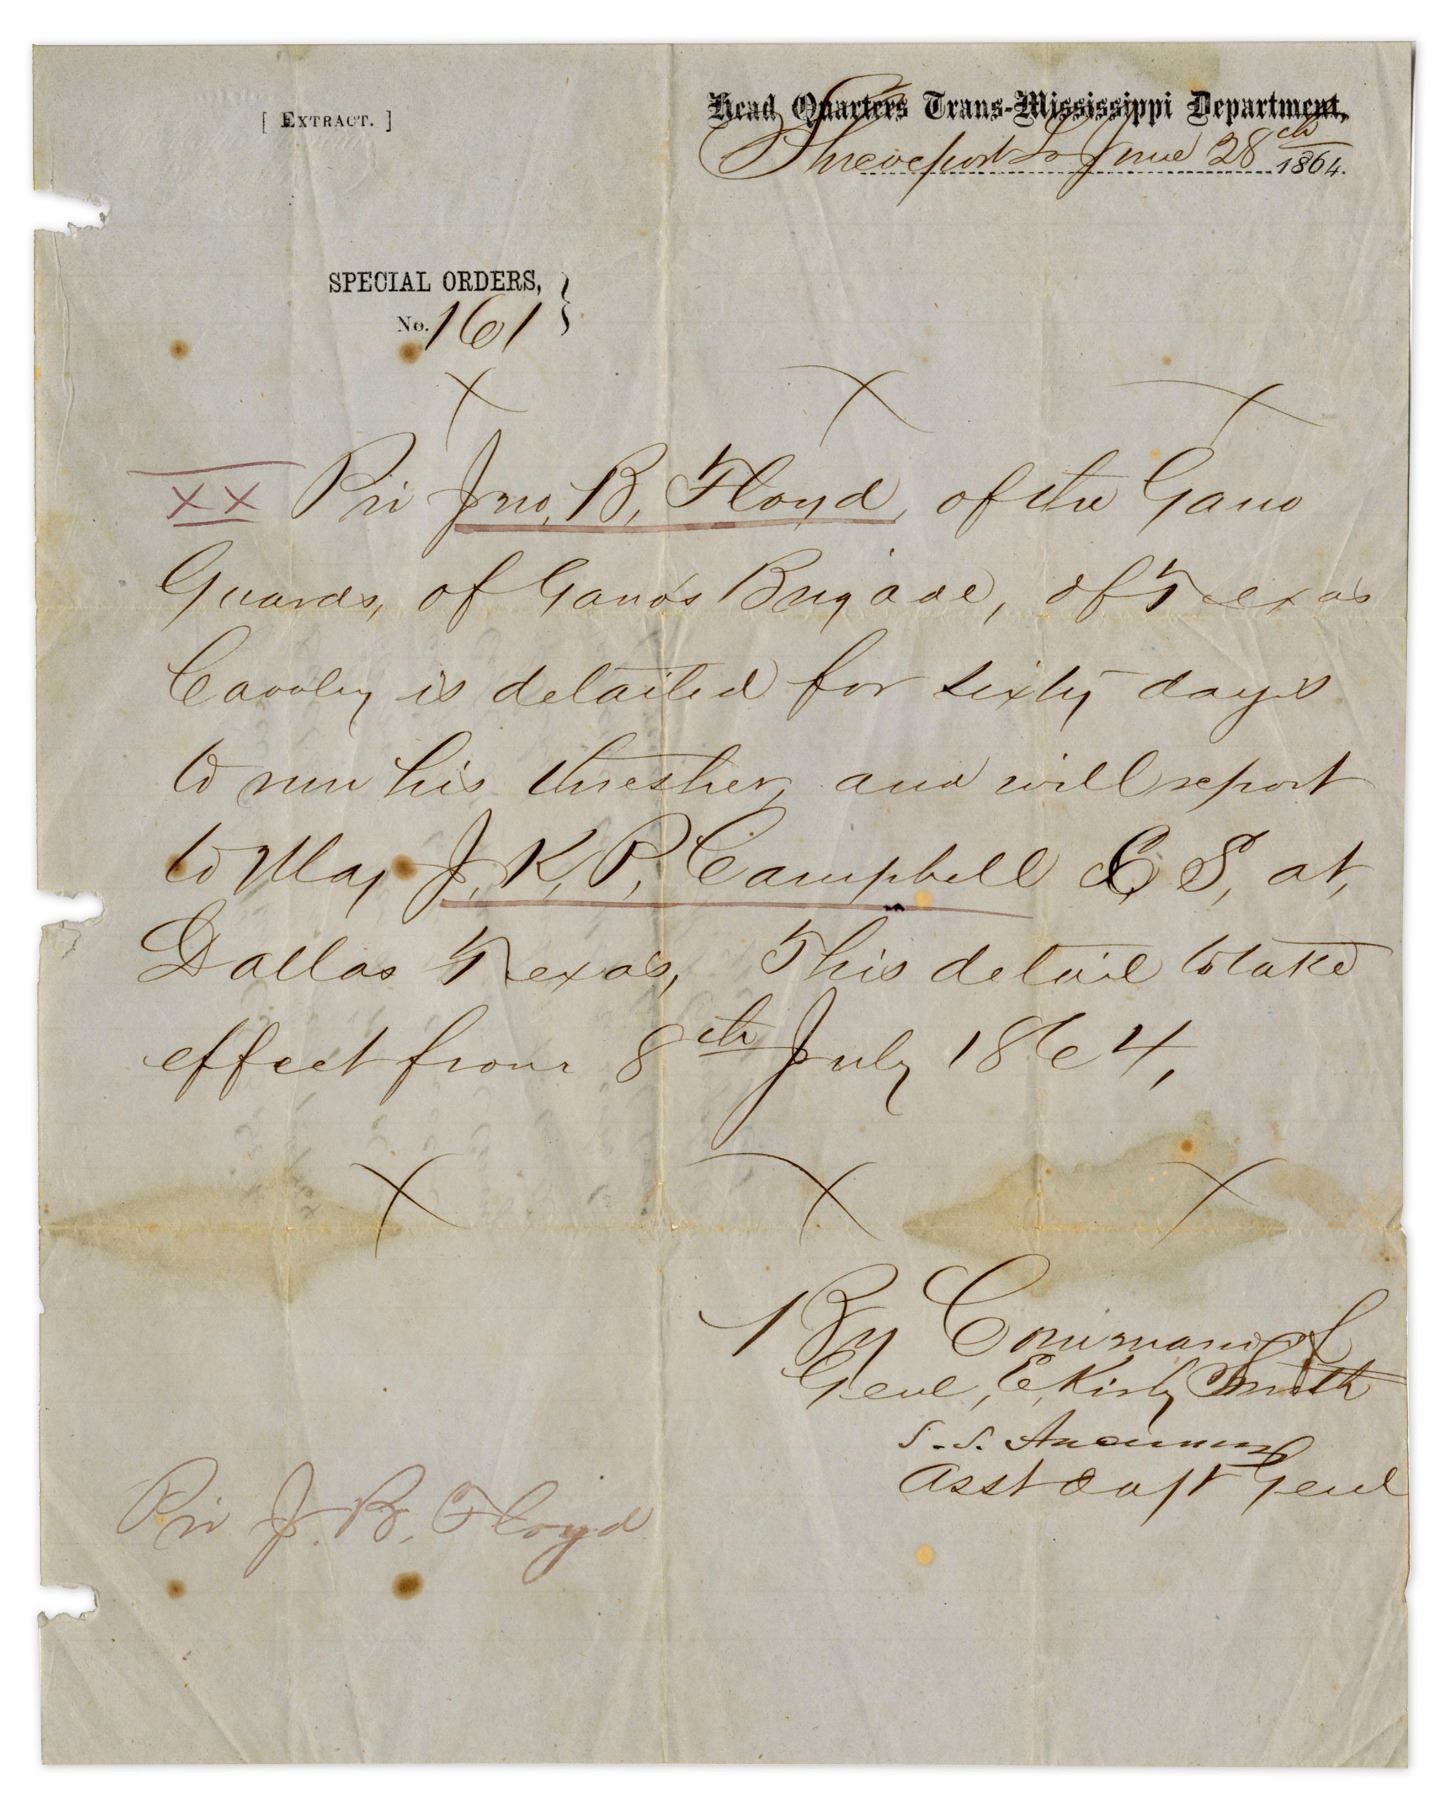 [ EXTRACT. ]
Head Quarters Trans-Mississippi Department,
Shreveport La June 28th 1864.
SPECIAL ORDERS, }
No. 161
X X X
XX Pri Jno, B, Floyd, of the Gano
Guards, of Gano's Brigade, of Texas
Cavalry is detailed for sixty days
to run his thresher, and will report
to Maj J, K, P, Campbell C, S, at,
Dallas Texas, This detail to take
effect from 8th July 1864,
X X X
By Command of
Genl, E, Kirby Smith
S. S. Anderson
Asst Adjt Genl
Pri J. B, Floyd